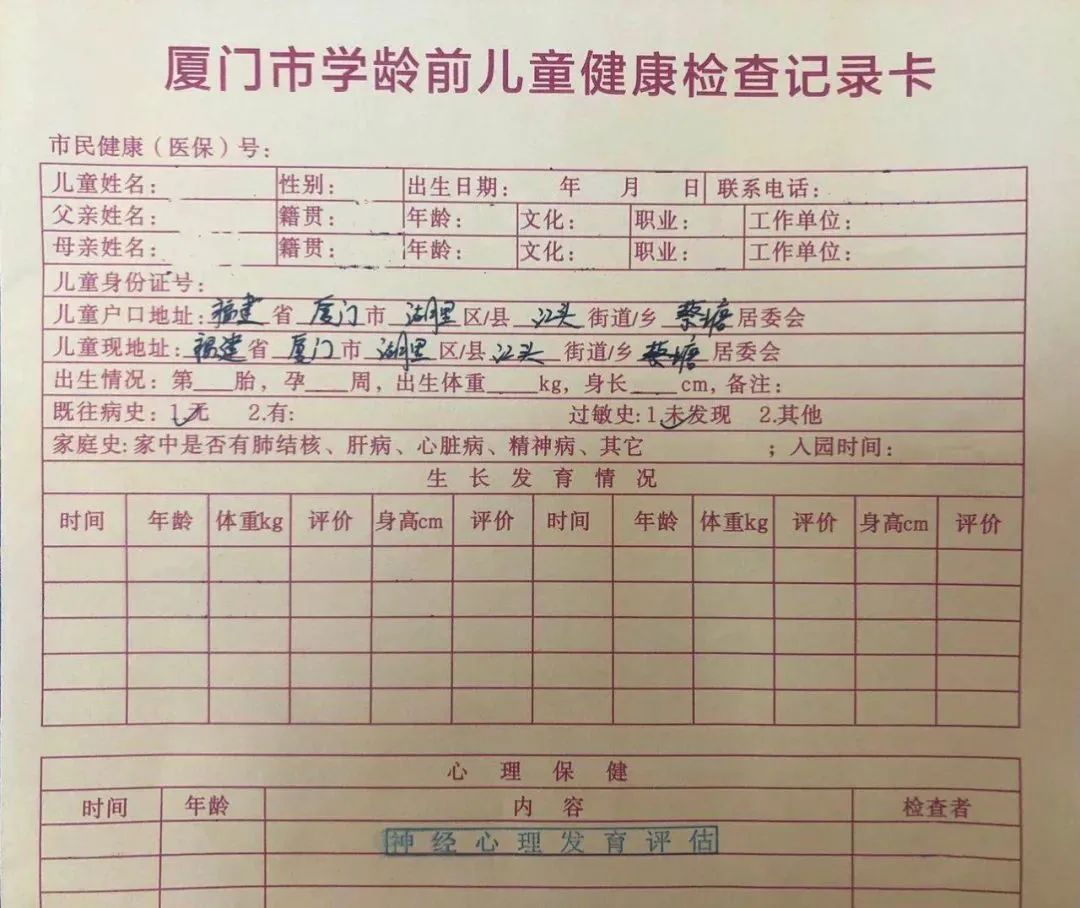 厦门市学龄前儿童健康检查记录卡
市民健康（医保）号：
儿童姓名： 性别： 出生日期： 年 月 日 联系电话：
父亲姓名： 籍贯： 年龄： 文化： 职业： 工作单位：
母亲姓名： 籍贯： 年龄： 文化： 职业： 工作单位：
儿童身份证号：
儿童户口地址：福建省 厦门市 湖里区/县 江头街道/乡 蔡塘居委会
儿童现地址：福建省 厦门市 湖里区/县 江头街道/乡 蔡塘居委会
出生情况：第___胎，孕___周，出生体重____kg，身长____cm，备注：
既往病史：1.无 2.有: 过敏史：1.未发现 2.其他
家庭史:家中是否有肺结核、肝病、心脏病、精神病、其它 ；入园时间：
生长发育情况
时间 年龄 体重kg 评价 身高cm 评价 时间 年龄 体重kg 评价 身高cm 评价
心理保健
时间 年龄 内容 检查者
神经心理发育评估